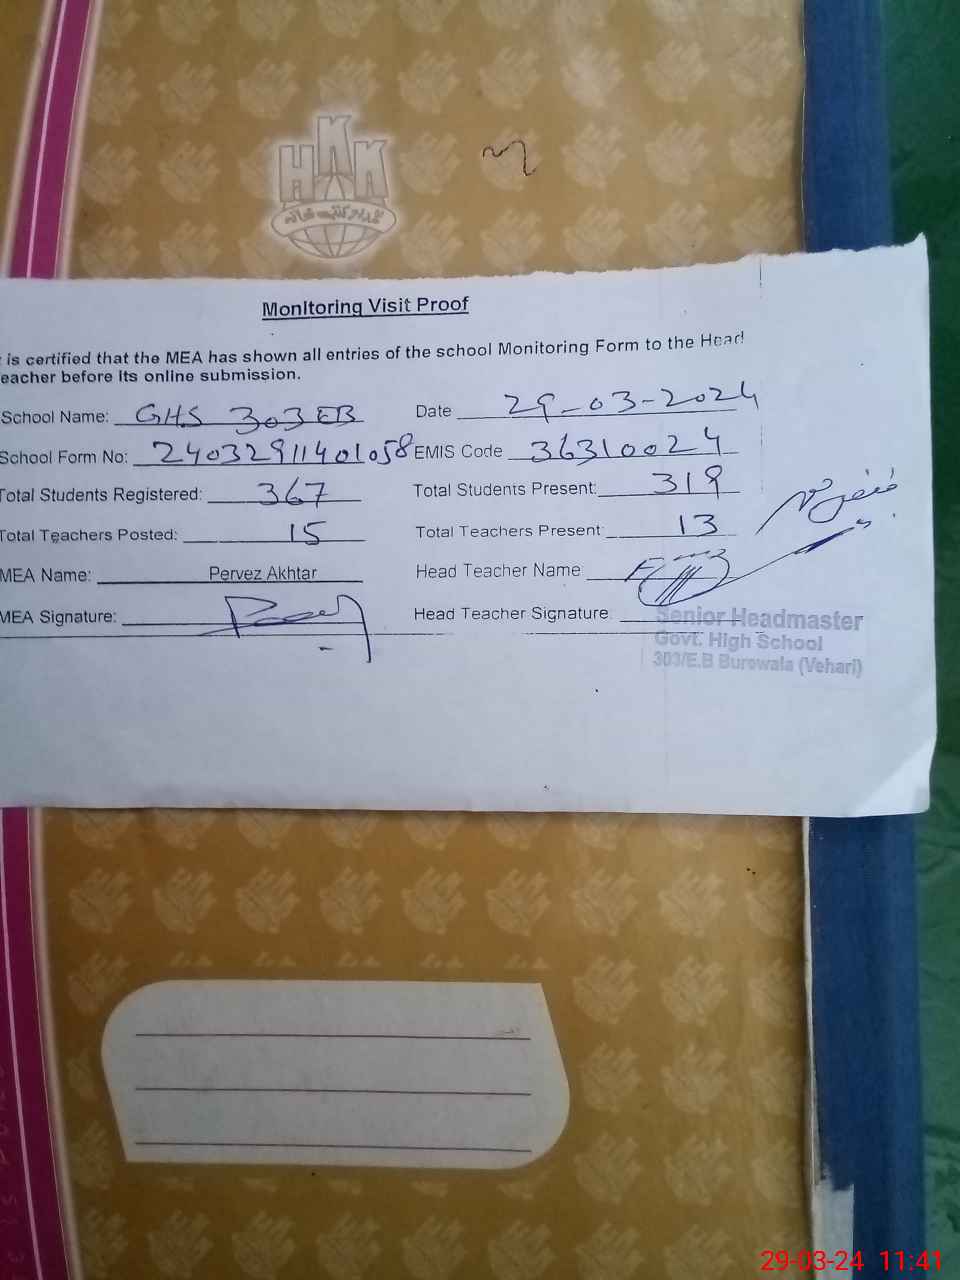 HKK
خدام کتب خانہ
Monitoring Visit Proof
is certified that the MEA has shown all entries of the school Monitoring Form to the Head
eacher before its online submission.
School Name: GHS 303 EB Date 29-03-2024
School Form No: 24032911401058 EMIS Code 36310024
Total Students Registered: 367 Total Students Present: 319
Total Teachers Posted: 15 Total Teachers Present: 13
MEA Name: Pervez Akhtar Head Teacher Name
MEA Signature: Head Teacher Signature:
Senior Headmaster
Govt. High School
303/E.B Burewala (Vehari)
29-03-24 11:41